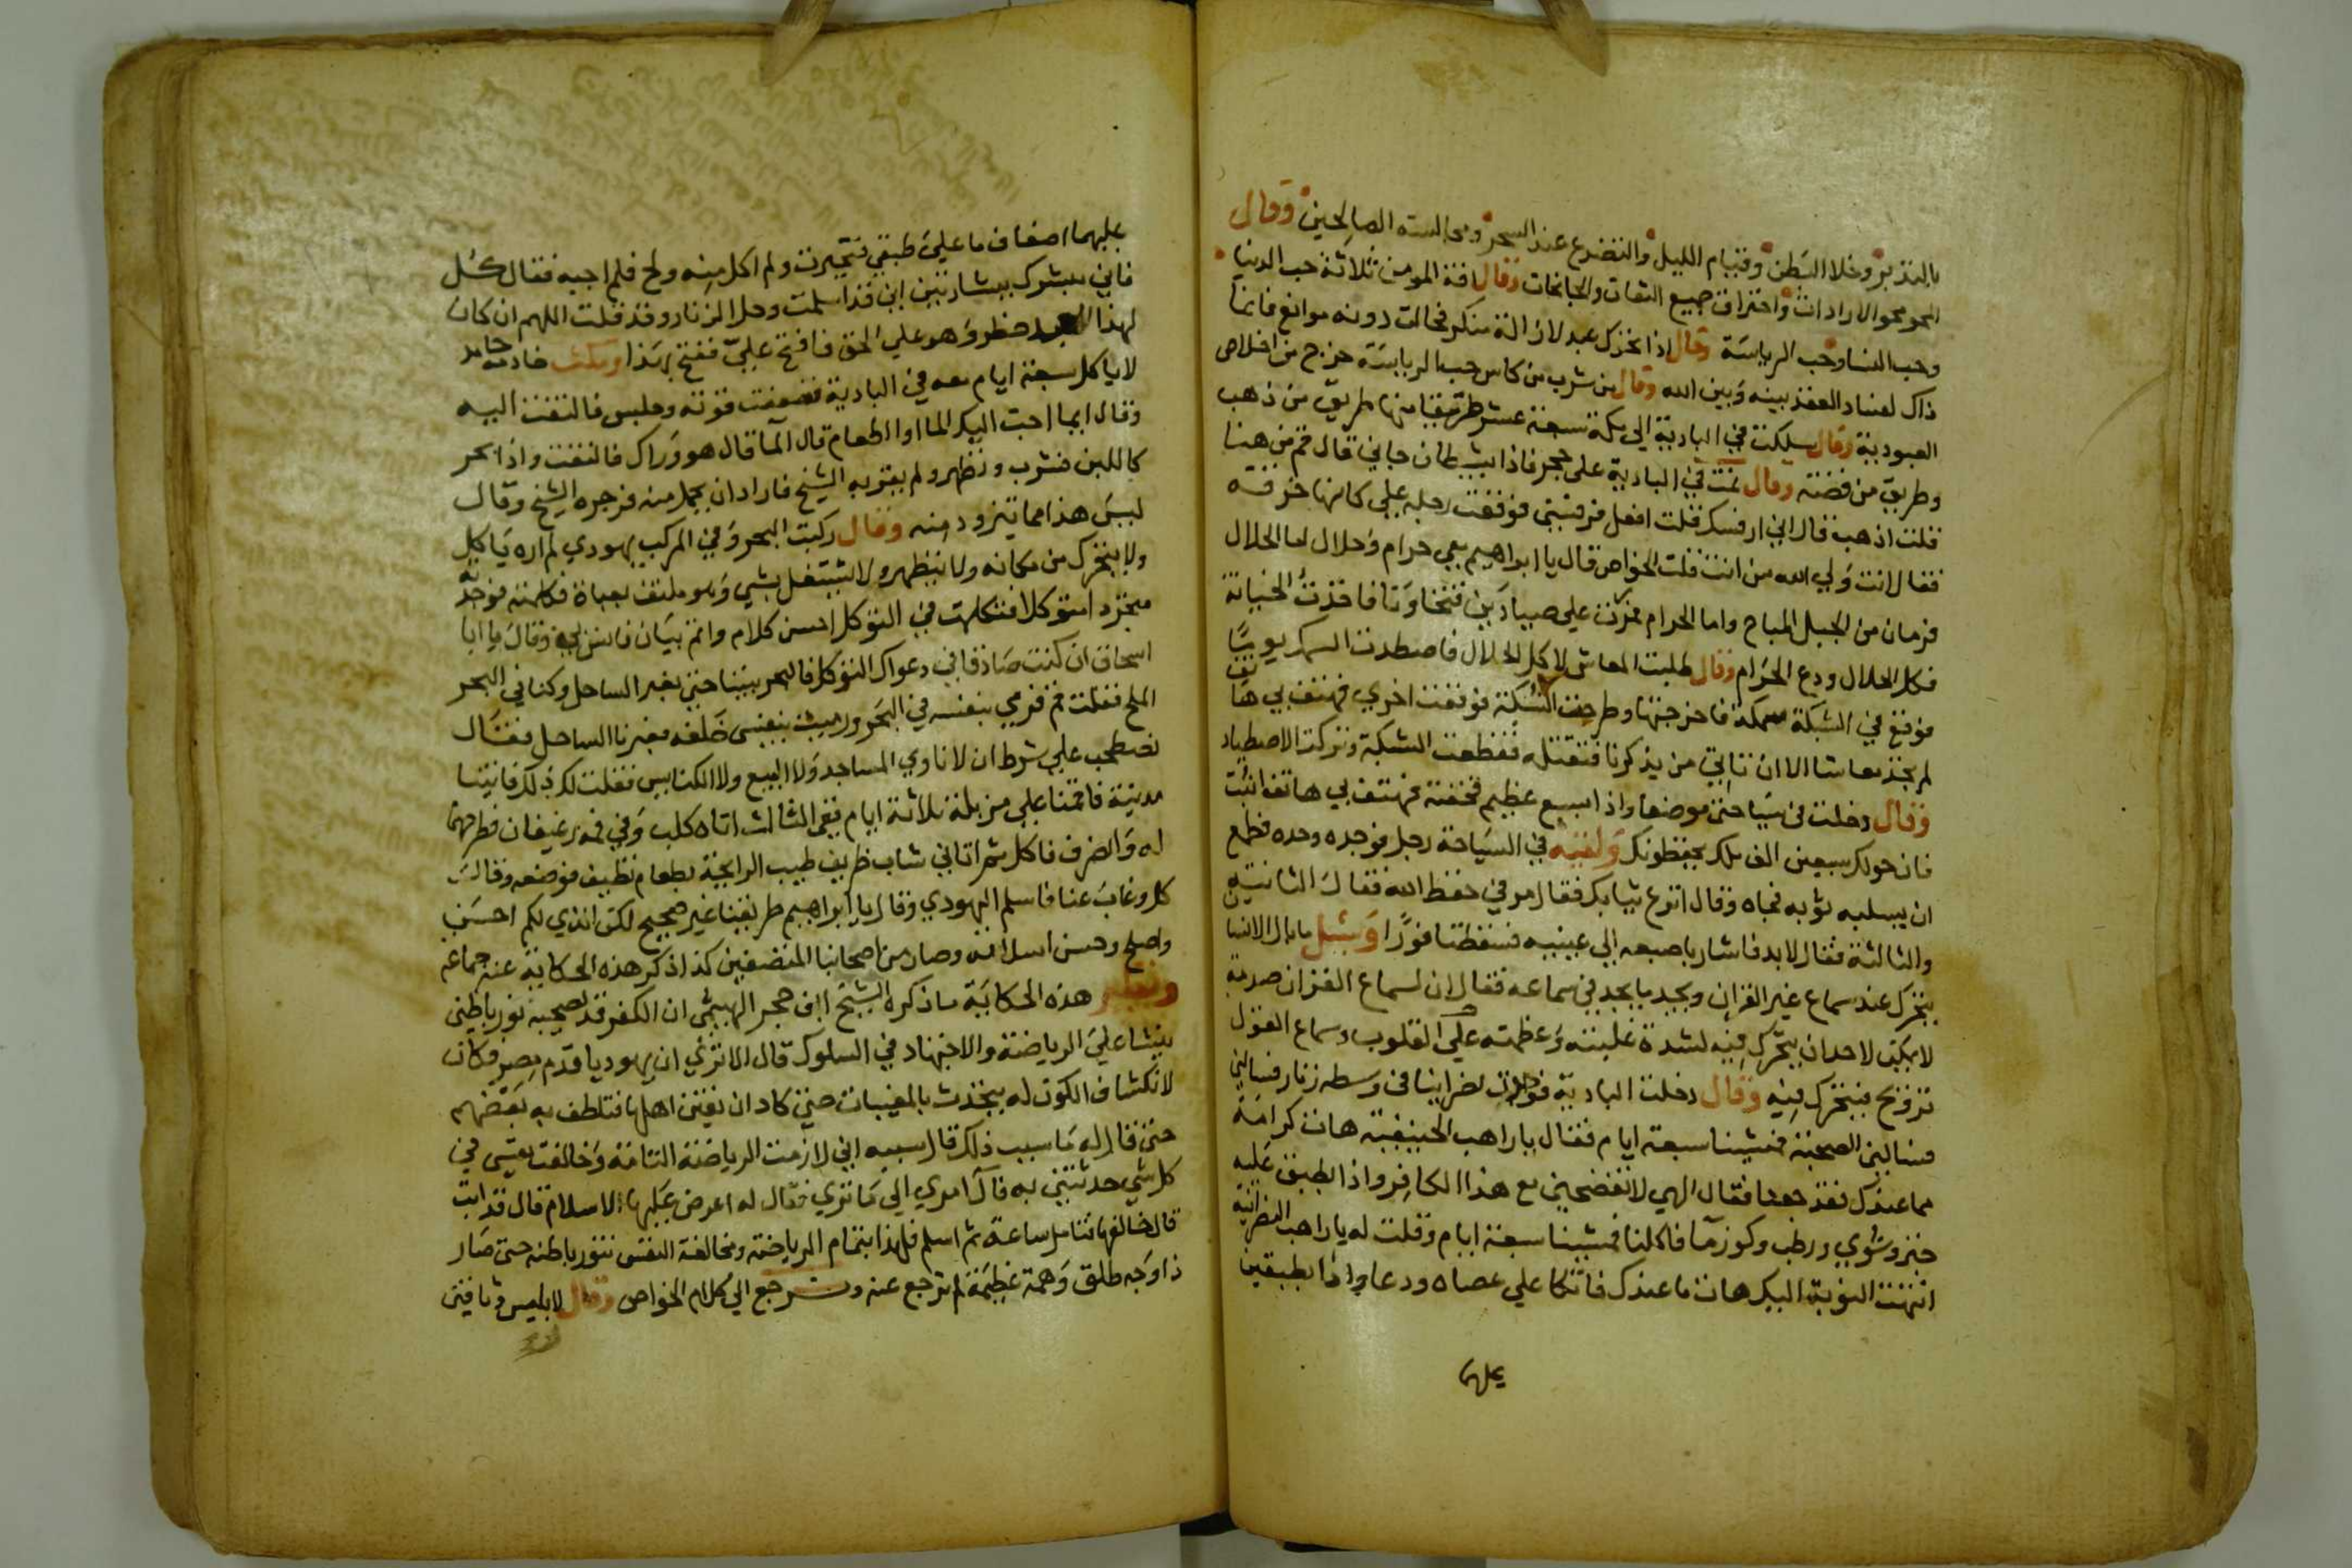 بالتدبر وخلا البطن وقيام الليل والتضرع عند السحر ومجالسة الصالحين وقال
المحو محو الارادات واحتراق جميع الصفات والحاجات وقال افة المومن ثلاثة حب الدنيا
وحب النسا وحب الرياسة وقال اذا تحرك عبد لازالة منكر فحالت دونه موانع فانما
ذاك لفساد العقد بينه وبين الله وقال من شرب من كاس حب الرياسة خرج من اخلاص
العبودية وقال سلكت في البادية الي مكة سبعة عشر طريقا منها طريق من ذهب
وطريق من فضة وقال نمت في البادية على حجر فاذا بشيطان جاني قال قم من هنا
قلت اذهب قال اني ارفسك قلت افعل فرفسني فوقعت رجله علي كانها خرقة
فقال انت ولي الله من انت قلت الخواص قال يا ابراهيم معي حرام وحلال اما الحلال
فرمان من الجبل المباح واما الحرام فمررت علي صيادين فتخاونا فاخذت الخيانة
فكل الحلال ودع الحرام وقال طلبت المعاش لاكل الحلال فاصطدت السمك يوما
فوقع في الشبكة سمكة فاخرجتها وطرحت الشبكة فوقعت اخري فهتف بي هاتف
لم تجد معاشا الا ان تاتي من يذكرنا فتقتله فقطعت الشبكة وتركت الاصطياد
وقال دخلت في سياحتي موضعا واذا بسبع عظيم فخفته فهتف بي هاتف اثبت
فان حولك سبعين الف ملك يحفظونك ولقيه في السياحة رجل فوجده وحده فطمع
ان يسلبه ثوبه فجاه وقال انزع ثيابك فقال مر في حفظ الله فقال الثانية
والثالثة فقال لابد فاشار باصبعه الي عينيه فسقطتا فورا وسئل ما بال الانسان
يتحرك عند سماع غير القران ويجد ما لا يجد في سماعه فقال لان لسماع القران صدمة
لا يمكن لاحد ان يتحرك فيه لشدة غلبته وعظمته علي القلوب وسماع القول
ترويح فيتحرك فيه وقال دخلت البادية فوجدت نصرانيا في وسطه زنار فسالني
فسالني الصحبة فمشينا سبعة ايام فقال يا راهب الحنيفية هات كرامة
مما عندك فقد جعنا فقال الهي لا تفضحني مع هذا الكافر واذا بطبق عليه
خبز وشوي ورطب وكوز ما فاكلنا فمشينا سبعة ايام وقلت له يا راهب النصرانية
انتهت النوبة اليك هات ما عندك فاتكا علي عصاه ودعا واذا بطبقين
عليهما
عليهما اضعاف ما علي طبقي فتحيرت ولم اكل منه والح فلم اجبه فقال كل
فاني مبشرك ببشارتين اني قد اسلمت وحل الزنار وقد قلت اللهم ان كان
لهذا العبد خطر وهو علي الحق فافتح علي ففتح بهذا ومكث خادمه حامد
لا ياكل سبعة ايام معه في البادية فضعفت قوته وجلس فالتفت اليه
وقال ايما احب اليك الما او الطعام قال الما قال هو وراك فالتفت واذا بحر
كاللبن فشرب وتطهر ولم يقربه الشيخ فاراد ان يحمل منه فزجره الشيخ وقال
ليس هذا مما يتزود منه وقال ركبت البحر وفي المركب يهودي لم اره ياكل
ولا يتحرك من مكانه ولا يتطهر ولا يشتغل بشي وهو ملتف بعباة فكلمته فوجدته
متجردا متوكلا فتكلمت في التوكل احسن كلام واتم بيان وقال يا ابا
اسحاق ان كنت صادقا في دعواك التوكل فالبحر بيننا حتي نعبر الساحل وكنا في البحر
الملح فقلت قم فرمي بنفسه في البحر ورميت بنفسي خلفه فعبرنا الساحل فقال
نصطحب علي شرط ان لا ناوي المساجد ولا البيع ولا الكنايس فقلت لك ذلك فاتينا
مدينة فاقمنا علي مزبلة ثلاثة ايام ففي الثالث اتاه كلب وفي فمه رغيفان فطرحهما
له وانصرف فاكل ثم اتاني شاب ظريف طيب الرايحة بطعام نظيف فوضعه وقال
كل وغاب عنا فاسلم اليهودي وقال يا ابراهيم طريقنا غير صحيح لكن الذي لكم احسن
واصلح وحسن اسلامه وصار من اصحابنا المتصفين كذا ذكر هذه الحكاية عنه جماعة
ونظير هذه الحكاية ما ذكره الشيخ ابن حجر الهيثمي ان الكفر قد يصحبه نور باطني
ينشا علي الرياضة والاجتهاد في السلوك قال الا تري ان يهوديا قدم مصر وكان
لانكشاف الكون له يتحدث بالمغيبات حتي كاد ان يفتن اهلها فتلطف به بعضهم
حتي قال له ما سبب ذلك قال سببه اني لازمت الرياضة التامة وخالفت نفسي في
كل شي حدثتني به قال امري الي ما تري فقال له اعرض عليها الاسلام قال قد ابت
قال خالفها فتامل ساعة ثم اسلم فلهذا بتمام الرياضة ومخالفة النفس تنور باطنه حتي صار
ذا وجه طلق وهمة عظيمة لم ترجع عنه ونرجع الي كلام الخواص وقال لابليس وثاقين